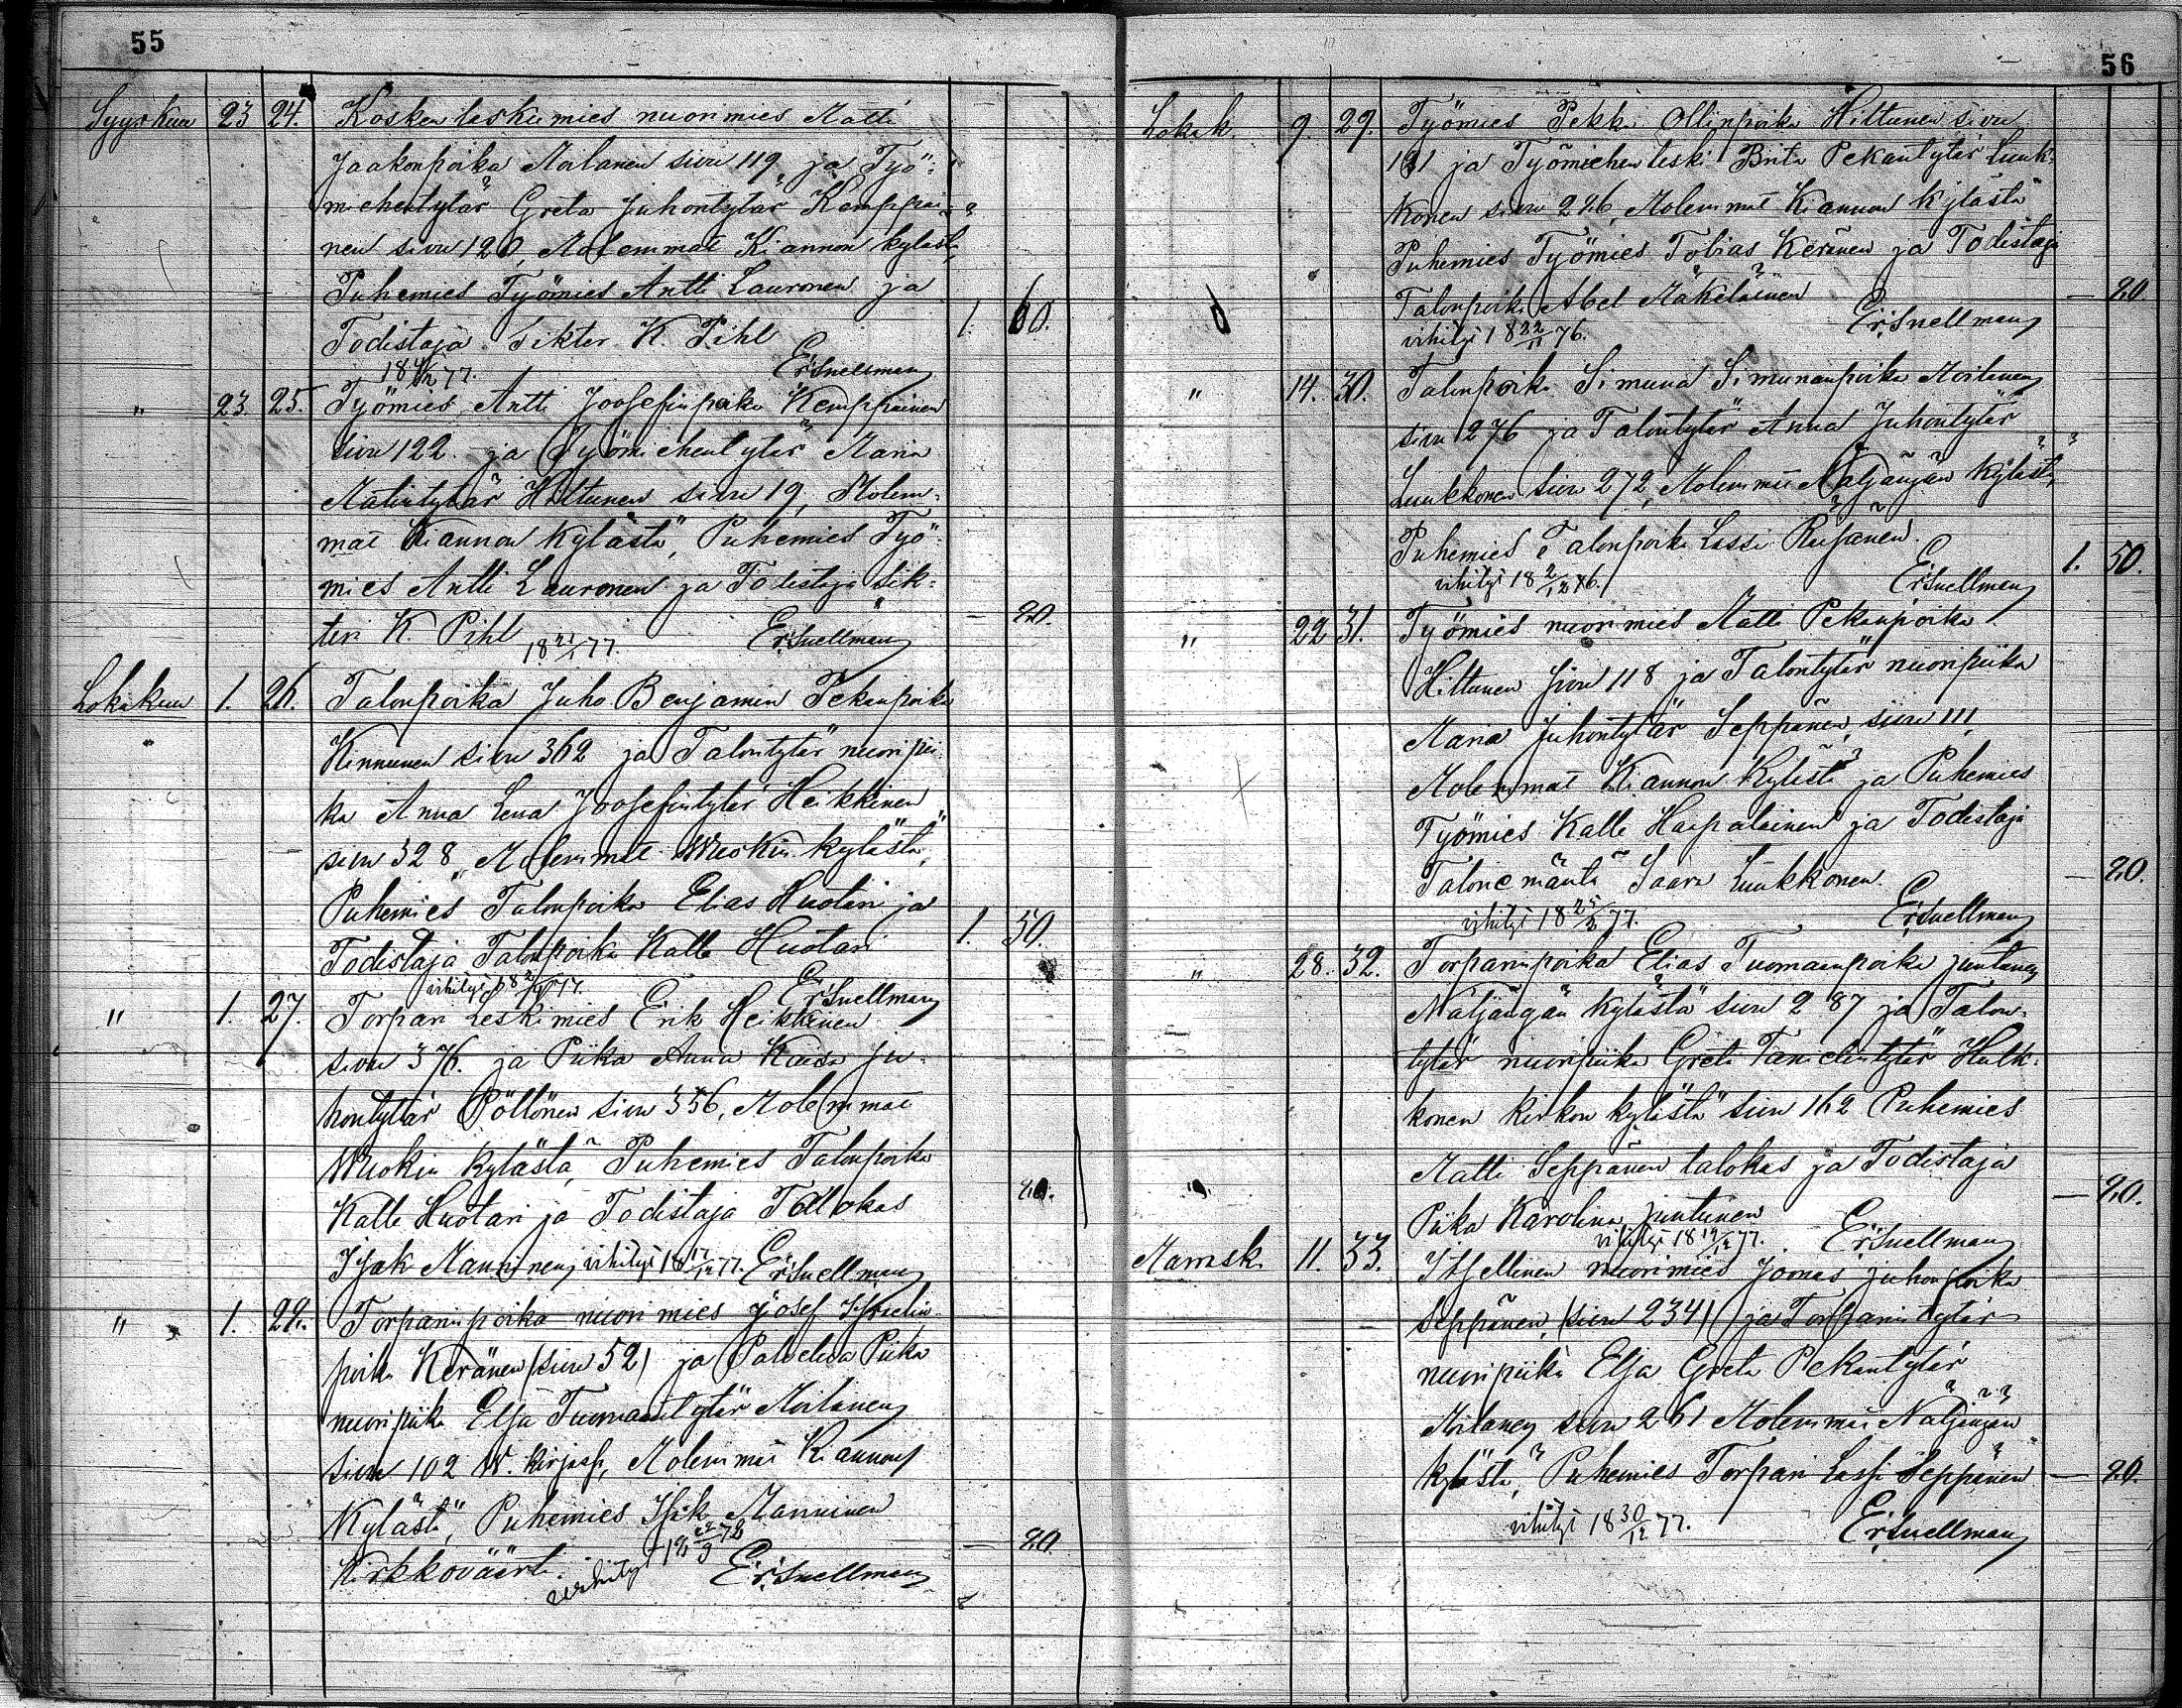 55
Syyskuu 23 24. Koskenlaskumies nuorimies Matti
Jaakonpoika Moilanen sivu 119, ja Työ-
miehentytär Greta Juhontytär Kemppai-
nen sivu 120, Molemmat Kiannon kylästä,
Puhemies Työmies Antti Lauronen ja
Todistaja Siktor K. Pihl 1. 60.
77. Er. Snellman
" 23. 25. Työmies Antti Joosefinpoika Kemppainen
sivu 122. ja Työmiehentytär Maria
Matintytär Hiltunen sivu 19, Molem-
mat Kiannon kylästä, Puhemies Työ-
mies Antti Lauronen ja Todistaja Sik-
tori K. Pihl 18 21/1 77. Er. Snellman — 80.
Lokakuu 1. 26. Talonpoika Juho Benjamin Pekanpoika
Kinnunen sivu 362 ja Talontytär nuoripii-
ka Anna Lena Joosefintytär Heikkinen
sivu 328, Molemmat Wuokin kylästä,
Puhemies Talonpoika Elias Huotari ja
Todistaja Talonpoika Kalle Huotari 1. 50.
vihityt 77. Er. Snellman
" 1. 27. Torpari Leskimies Erik Heikkinen
sivu 376. ja Piika Anna Kaisa Ju-
hontytär Pöllönen sivu 356, Molemmat
Wuokin kylästä, Puhemies Talonpoika
Kalle Huotari ja Todistaja Talokas 80.
Isak Manninen, vihityt 18 17/12 77. Er. Snellman
" 1. 28. Torparinpoika nuorimies Josef
poika Keränen (sivu 52) ja Palvelus Piika
nuoripiika Elsa Tuomaantytär Moilanen
sivu 102 W. kirjass, Molemmat Kiannon
Kylästä, Puhemies Isak Manninen
Kirkkoväärti. vihityt Er. Snellman — 80.
56
Lokak. 9. 29. Työmies Pekka Ollinpoika Hiltunen sivu
191 ja Työmiehen leski Brita Pekantytär Luuk-
konen sivu 226, Molemmat Kiannon kylästä
Puhemies Työmies Tobias Keränen ja Todistaja
Talonpoika Abel Mäkeläinen — 80.
vihityt 18 22/11 76. Er. Snellman
" 14. 30. Talonpoika Simuna Simunanpoika Moilanen
sivu 276 ja Talontytär Anna Juhontytär
Luukkonen sivu 272, Molemmat Näljängän kylästä,
Puhemies Talonpoika Lassi Reijanen. 1. 50.
vihityt 18 2/12 76. Er. Snellman
" 22 31. Työmies nuorimies Matti Pekanpoika
Hiltunen sivu 118 ja Talontytär nuoripiika
Maria Juhontytär Seppänen, sivu 111,
Molemmat Kiannon Kylästä ja Puhemies
Työmies Kalle Haapalainen ja Todistaja
Talonemäntä Saara Luukkonen. — 80.
vihityt 18 25/2 77. Er. Snellman
" 28. 32. Torparinpoika Elias Tuomaanpoika Juntunen
Näljängän kylästä sivu 287 ja Talon-
tytär nuoripiika Greta Tanielintytär Hulk-
konen kirkon kylästä sivu 162 Puhemies
Matti Seppänen talokas ja Todistaja
Piika Karolina Juntunen — 80.
vihityt 18 19/12 77. Er. Snellman
Marrask. 11. 33. Itsellinen nuorimies Joonas Juhonpoika
Seppänen, (sivu 234) ja Torparintytär
nuoripiika Elsa Greta Pekantytär
Moilanen sivu 261 Molemmat Näljängän
kylästä, Puhemies Torpari Lassi Seppänen — 80.
vihityt 18 30/12 77. Er. Snellman